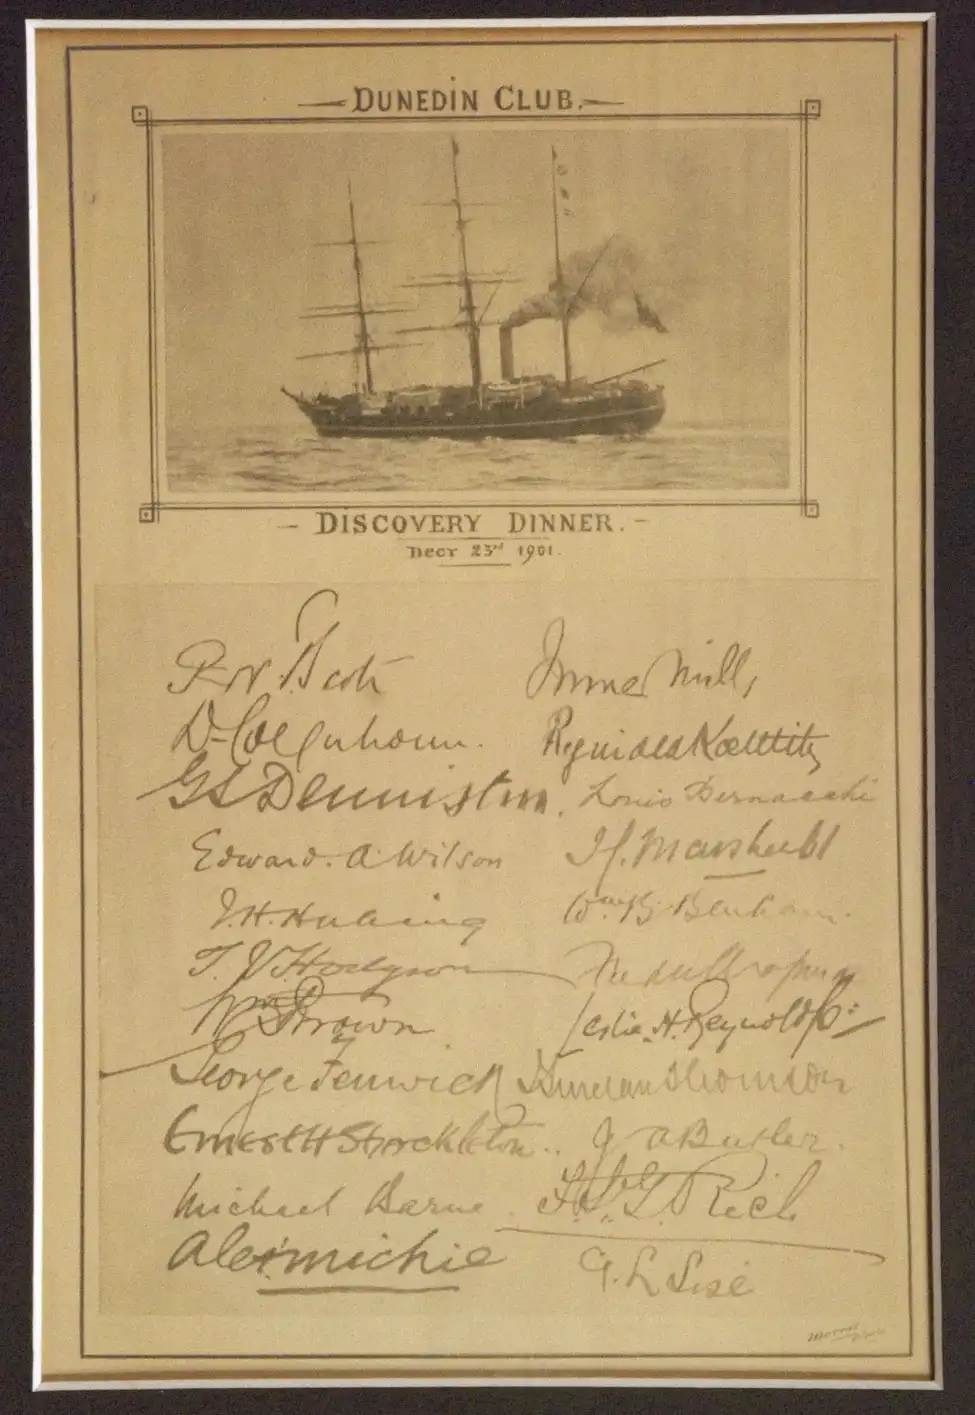 DUNEDIN CLUB.
- DISCOVERY DINNER. -
Decr 23rd 1901.
R Scott
James Mills
D. Colquhoun.
Reginald Koettlitz
GL Denniston.
Louis Bernacchi
Edward. A. Wilson
P. Marshall
J.H. Hosking
Wm B. Benham.
T. V. Hodgson
Wm Brown
Leslie. H. Reynolds
George Fenwick
Ernest H Shackleton..
Butler.
Michael Barne.
Rich
Alex. Michie
G. L Sise